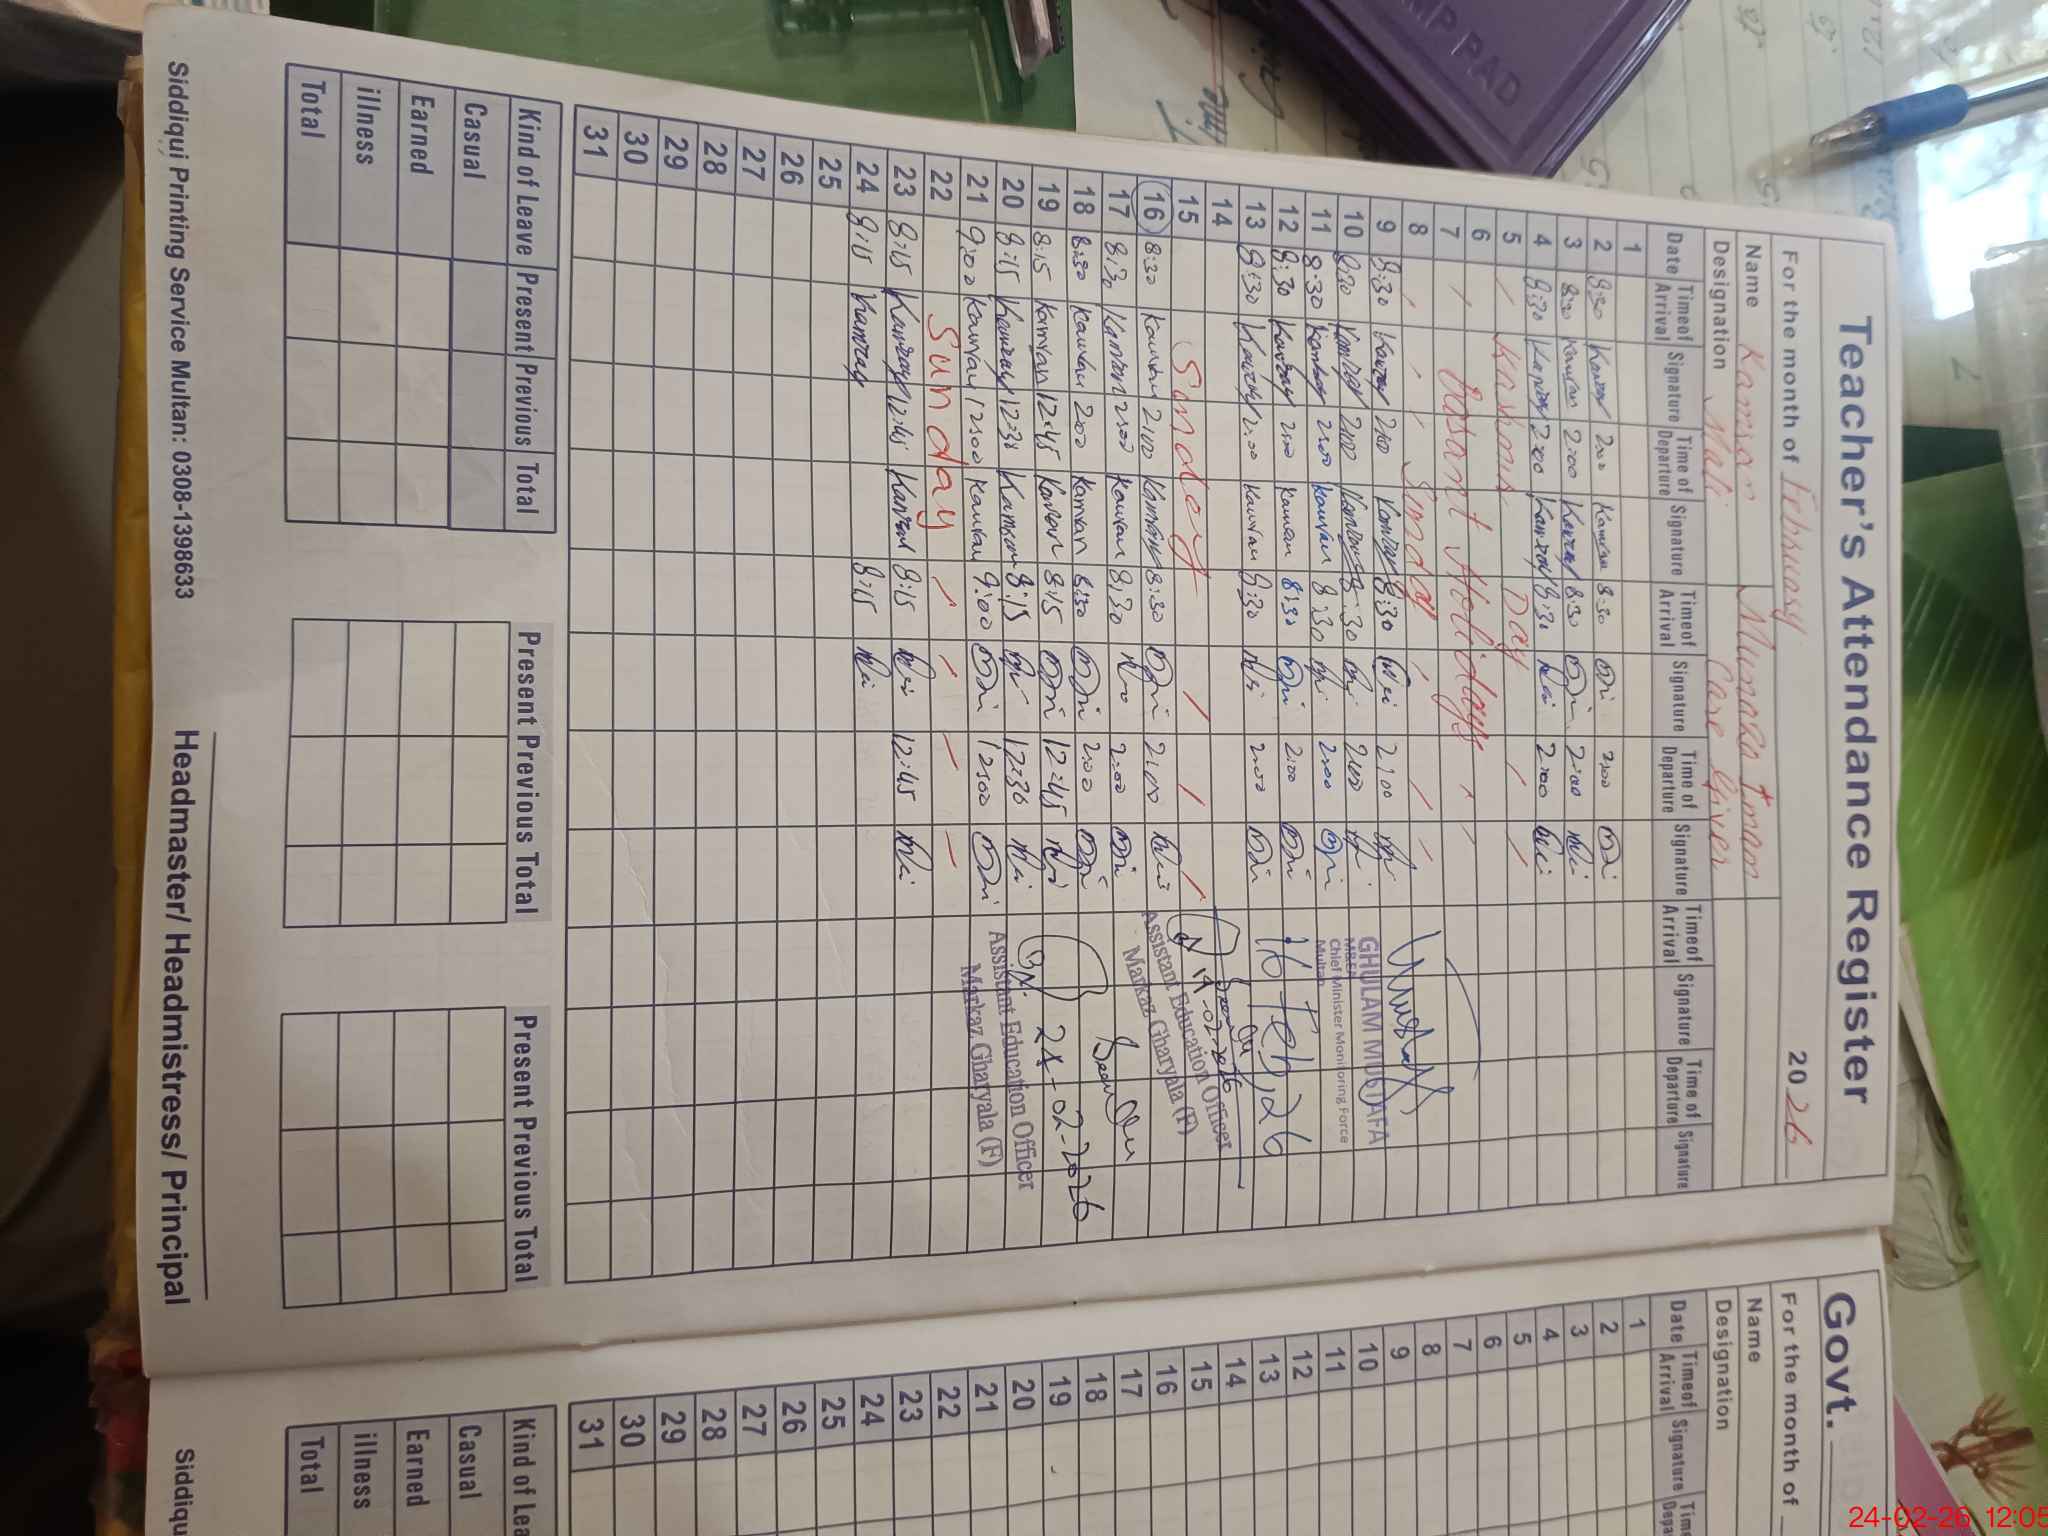 Teacher's Attendance Register
For the month of February 2026
Name Kamran Munaza Imam
Designation Mali Care Giver
Date Timeof Arrival Signature Time of Departure Signature Timeof Arrival Signature Time of Departure Signature Timeof Arrival Signature Time of Departure Signature
1
2 8:30 Kamran 2:00 Kamran 8:30 2:00
3 8:30 Kamran 2:00 Kamran 8:30 2:00
4 8:30 Kamran 2:00 Kamran 8:30 2:00
5 Kashmir Day
6
7 Basant Holidays
8 Sunday
9 8:30 Kamran 2:00 Kamran 8:30 2:00
10 8:30 Kamran 2:00 Kamran 8:30 2:00
11 8:30 Kamran 2:00 Kamran 8:30 2:00
12 8:30 Kamran 2:00 Kamran 8:30 2:00
13 8:30 Kamran 2:00 Kamran 8:30 2:00
14
15 Sunday
16 8:30 Kamran 2:00 Kamran 8:30 2:00
17 8:30 Kamran 2:00 Kamran 8:30 2:00
18 8:30 Kamran 2:00 Kamran 8:30 2:00
19 8:15 Kamran 12:45 Kamran 8:15 12:45
20 8:15 Kamran 12:30 Kamran 8:15 12:30
21 9:00 Kamran 12:00 Kamran 9:00 12:00
22 Sunday
23 8:15 Kamran 12:45 Kamran 8:15 12:45
24 8:15 Kamran 8:15
25
26
27
28
29
30
31
GHULAM MUSTAFA
M&EA
Chief Minister Monitoring Force
Multan
16 Feb, 26
Assistant Education Officer
Markaz Gharyala (F)
24-02-2026
Assistant Education Officer
Markaz Gharyala (F)
Kind of Leave Present Previous Total Present Previous Total Present Previous Total
Casual
Earned
illness
Total
Siddiqui Printing Service Multan: 0308-1398633
Headmaster/ Headmistress/ Principal
Govt.
For the month of
Name
Designation
Date Timeof Arrival Signature
1
2
3
4
5
6
7
8
9
10
11
12
13
14
15
16
17
18
19
20
21
22
23
24
25
26
27
28
29
30
31
Kind of Lea
Casual
Earned
illness
Total
Siddiqu
MP PAD
24-02-26 12:05